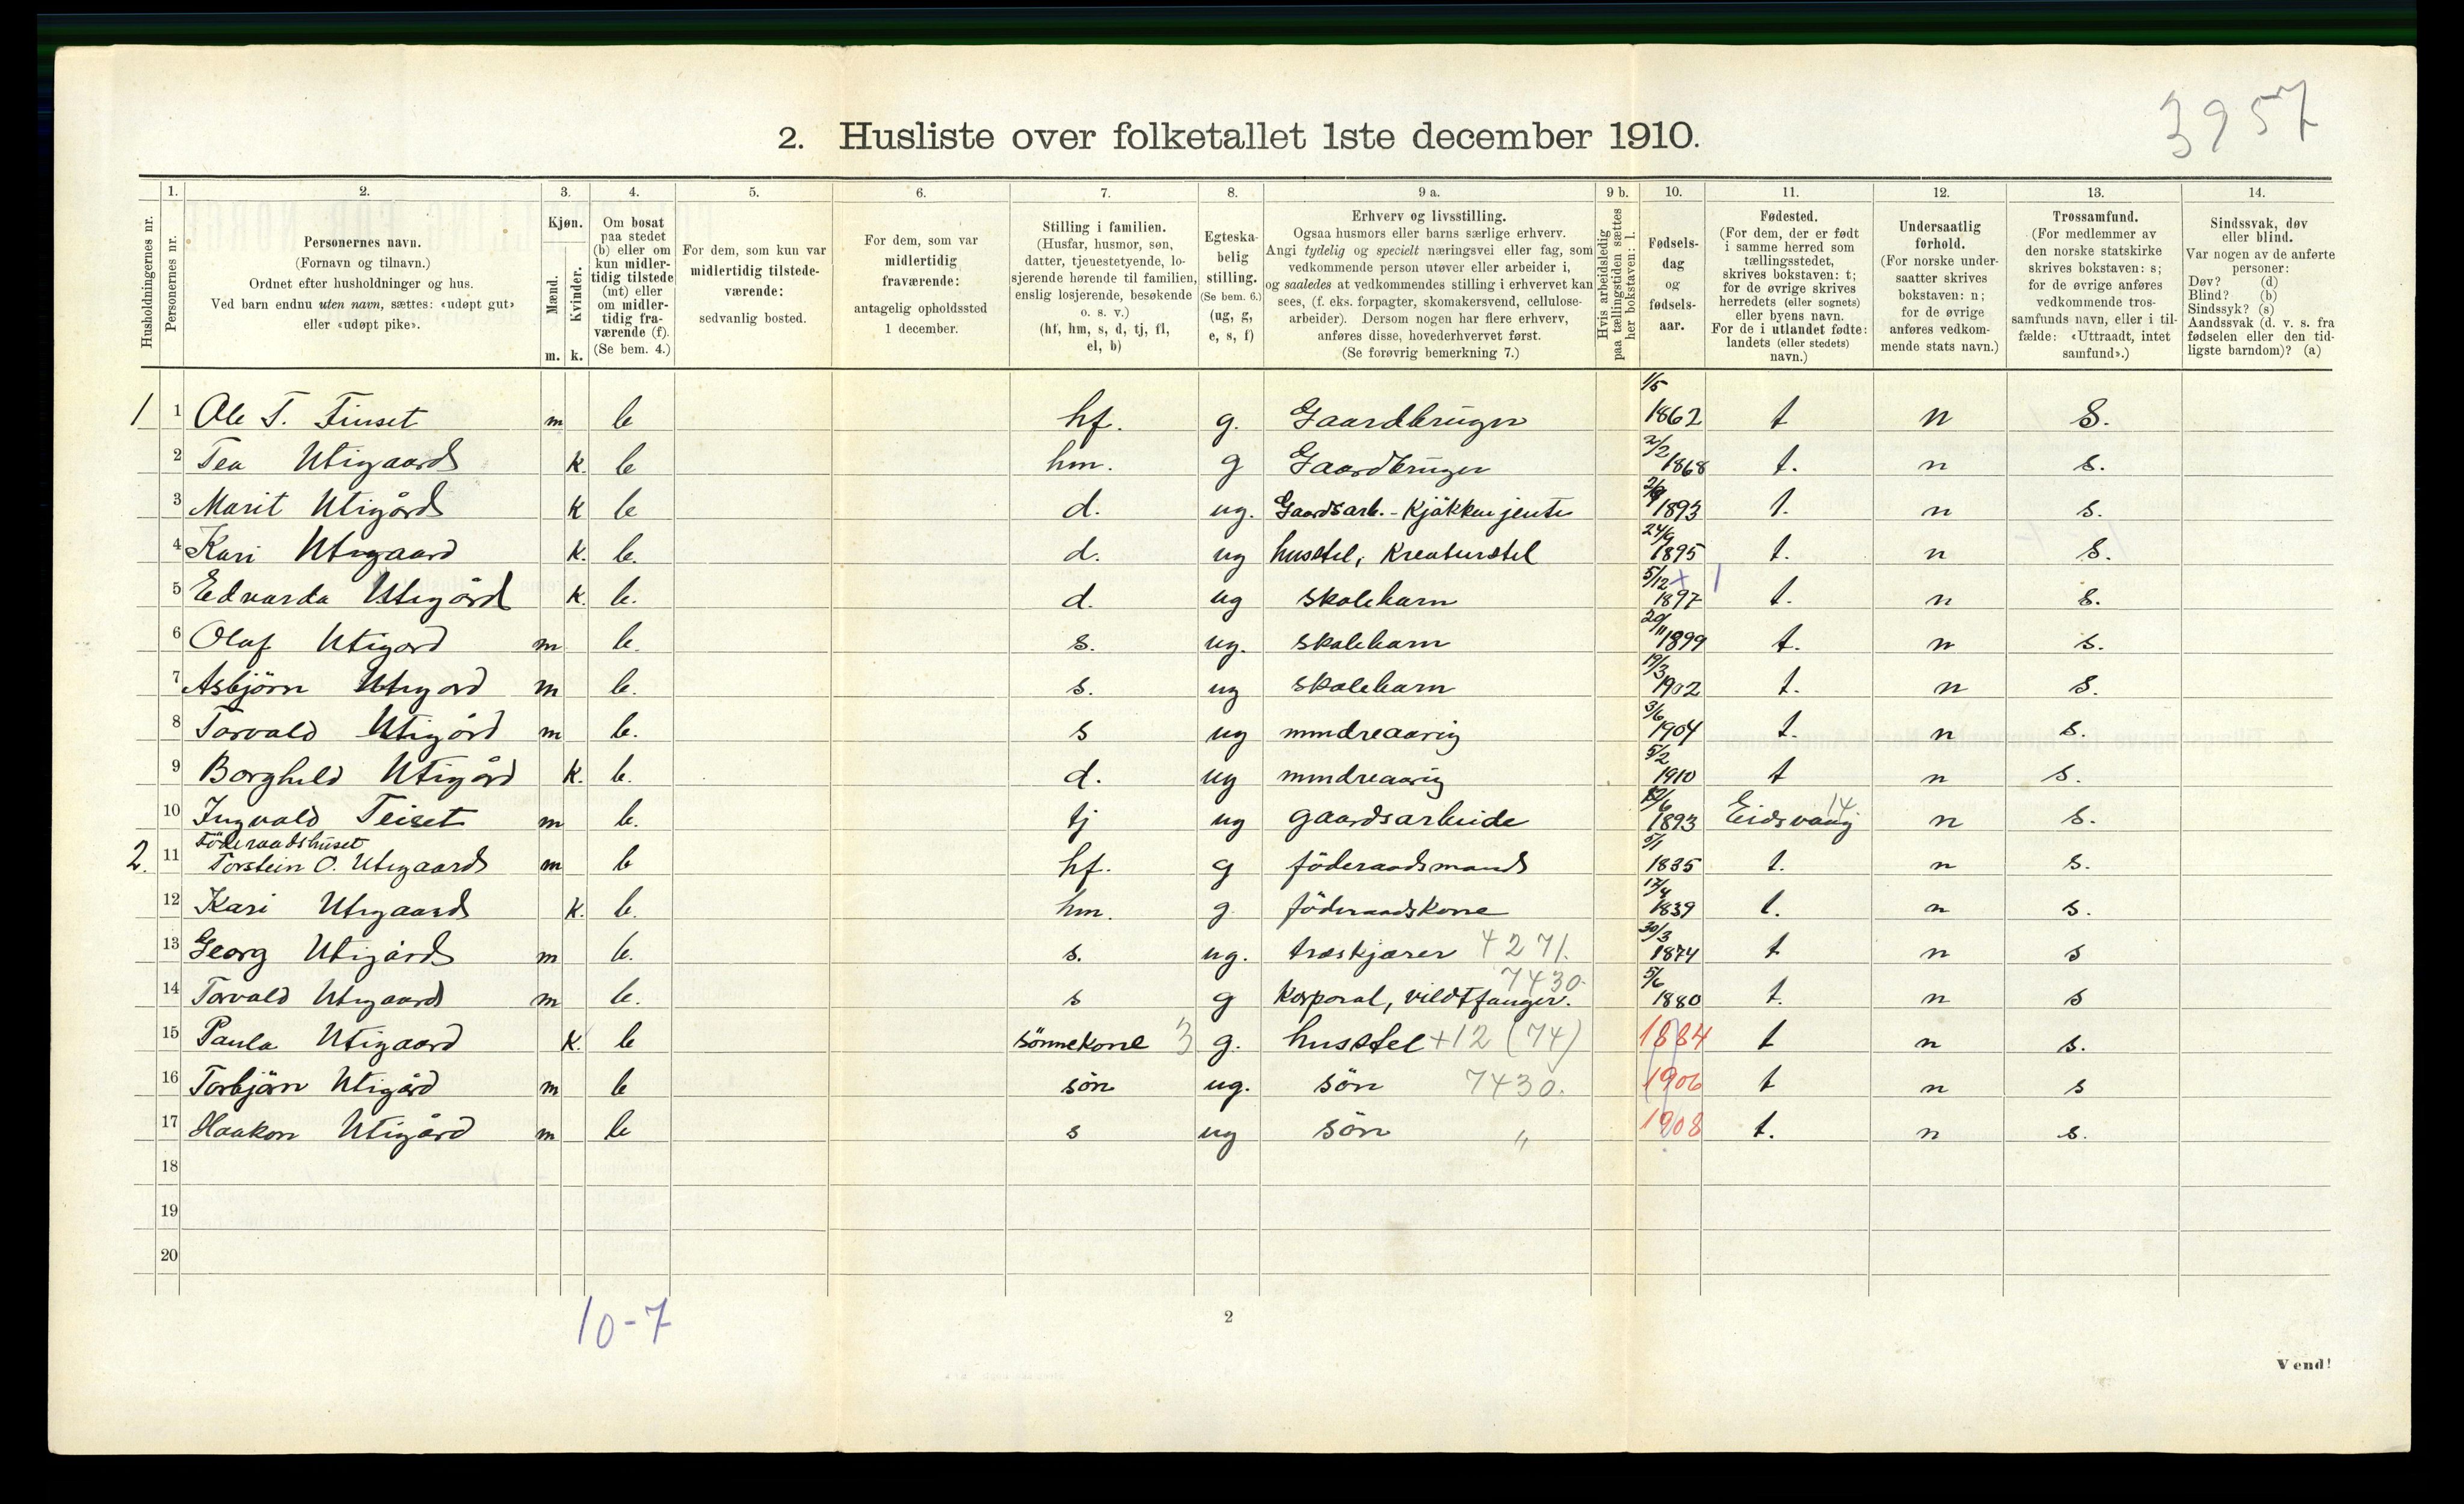 3957
2. Husliste over folketallet 1ste december 1910.
1. 2. 3. 4. 5. 6. 7. 8. 9 a. 9 b. 10. 11. 12. 13. 14.
Husholdningernes nr.
Personernes nr.
Personernes navn.
(Fornavn og tilnavn.)
Ordnet efter husholdninger og hus.
Ved barn endnu uten navn, sættes: «udøpt gut»
eller «udøpt pike».
Kjøn.
Mænd.
Kvinder.
m. k.
Om bosat
paa stedet
(b) eller om
kun midler-
tidig tilstede
(mt) eller
om midler-
tidig fra-
værende (f).
(Se bem. 4.)
For dem, som kun var
midlertidig tilstede-
værende:
sedvanlig bosted.
For dem, som var
midlertidig
fraværende:
antagelig opholdssted
1 december.
Stilling i familien.
(Husfar, husmor, søn,
datter, tjenestetyende, lo-
sjerende hørende til familien,
enslig losjerende, besøkende
o. s. v.)
(hf, hm, s, d, tj, fl,
el, b)
Egteska-
belig
stilling.
(Se bem. 6.)
(ug, g,
e, s, f)
Erhverv og livsstilling.
Ogsaa husmors eller barns særlige erhverv.
Angi tydelig og specielt næringsvei eller fag, som
vedkommende person utøver eller arbeider i,
og saaledes at vedkommendes stilling i erhvervet kan
sees, (f. eks. forpagter, skomakersvend, cellulose-
arbeider). Dersom nogen har flere erhverv,
anføres disse, hovederhvervet først.
(Se forøvrig bemerkning 7.)
Hvis arbeidsledig
paa tællingstiden sættes
her bokstaven: l.
Fødsels-
dag
og
fødsels-
aar.
Fødested.
(For dem, der er født
i samme herred som
tællingsstedet,
skrives bokstaven: t;
for de øvrige skrives
herredets (eller sognets)
eller byens navn.
For de i utlandet fødte:
landets (eller stedets)
navn.)
Undersaatlig
forhold.
(For norske under-
saatter skrives
bokstaven: n;
for de øvrige
anføres vedkom-
mende stats navn.)
Trossamfund.
(For medlemmer av
den norske statskirke
skrives bokstaven: s;
for de øvrige anføres
vedkommende tros-
samfunds navn, eller i til-
fælde: «Uttraadt, intet
samfund».)
Sindssvak, døv
eller blind.
Var nogen av de anførte
personer:
Døv? (d)
Blind? (b)
Sindssyk? (s)
Aandssvak (d. v. s. fra
fødselen eller den tid-
ligste barndom)? (a)
1 1 Ole T. Finset m b hf. g. Gaardbruger 1/5 1862 t n S.
2 Tea Utigaard k. b hm. g Gaardbruger 2/2 1868 t. n s.
3 Marit Utigård k b d. ug. Gaardsarb. - Kjökkenjente 1893 t. n s.
4 Kari Utigaard k. b. d. ug husstel, Kreaturstel 24/9 1895 t. n S.
5 Edvarda Utigård k. b. d. ug skolebarn 5/12 1897 t. n S.
6 Olaf Utigard m b. s. ug. skolebarn 20/11 1899 t. n s.
7 Asbjörn Utigard m b. s. ug skolebarn 19/3 1902 t. n S.
8 Torvald Utigård m b. s ug mindreaarig 3/6 1904 t. n s.
9 Borghild Utigård k. b. d. ug mindreaarig 5/2 1910 t n s.
10 Ingvald Teiset m b. tj ug gaardsarbeide 1893 Eidsvaag 14 n s.
Föderaadshuset
2. 11 Torstein O. Utigaard m b hf. g föderaadsmand 5/1 1835 t. n s.
12 Kari Utigaard k. b. hm. g föderaadskone 17/4 1839 t. n s.
13 Georg Utigård m b. s. ug. træskjærer 4271. 30/3 1874 t n s
14 Torvald Utigaard m b. s g Korporal, vildtfanger. 7430. 5/6 1880 t. n s
15 Paula Utigaard k. b sönnekone 3 g. husstel +12 (74) 1884 t n s.
16 Torbjörn Utigård m b sön ug. sön 7430. 1906 t n s
17 Haakon Utigård m b s ug sön " 1908 t. n s.
18
19
20
10-7
2
Vend!